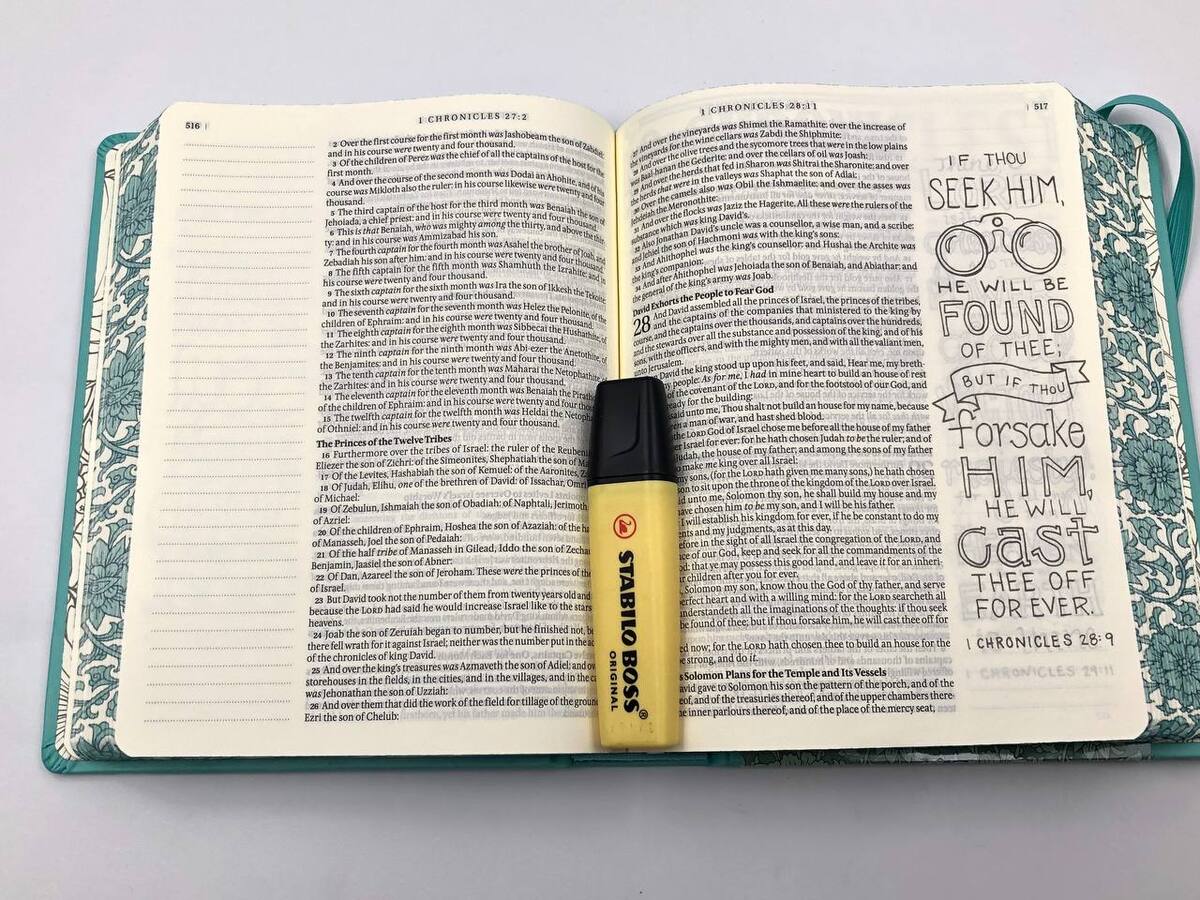 516
1 CHRONICLES 27:2
2 Over the first course for the first month was Jashobeam the son of Zabdiel:
and in his course were twenty and four thousand.
3 Of the children of Perez was the chief of all the captains of the host for the
first month.
4 And over the course of the second month was Dodai an Ahohite, and of his
course was Mikloth also the ruler: in his course likewise were twenty and four
thousand.
5 The third captain of the host for the third month was Benaiah the son of
Jehoiada, a chief priest: and in his course were twenty and four thousand.
6 This is that Benaiah, who was mighty among the thirty, and above the thir-
ty: and in his course was Ammizabad his son.
7 The fourth captain for the fourth month was Asahel the brother of Joab, and
Zebadiah his son after him: and in his course were twenty and four thousand.
8 The fifth captain for the fifth month was Shamhuth the Izrahite: and in
his course were twenty and four thousand.
9 The sixth captain for the sixth month was Ira the son of Ikkesh the Tekoite:
and in his course were twenty and four thousand.
10 The seventh captain for the seventh month was Helez the Pelonite, of the
children of Ephraim: and in his course were twenty and four thousand.
11 The eighth captain for the eighth month was Sibbecai the Hushathite, of
the Zarhites: and in his course were twenty and four thousand.
12 The ninth captain for the ninth month was Abi-ezer the Anetothite, of
the Benjamites: and in his course were twenty and four thousand.
13 The tenth captain for the tenth month was Maharai the Netophathite, of
the Zarhites: and in his course were twenty and four thousand.
14 The eleventh captain for the eleventh month was Benaiah the
of the children of Ephraim: and in his course were twenty and four
15 The twelfth captain for the twelfth month was Heldai the
of Othniel: and in his course were twenty and four thousand.
The Princes of the Twelve Tribes
16 Furthermore over the tribes of Israel: the ruler of the
Eliezer the son of Zichri: of the Simeonites, Shephatiah the son of
17 Of the Levites, Hashabiah the son of Kemuel: of the Aaronites,
18 Of Judah, Elihu, one of the brethren of David: of Issachar,
of Michael:
19 Of Zebulun, Ishmaiah the son of Obadiah: of Naphtali, Jerimoth
of Azriel:
20 Of the children of Ephraim, Hoshea the son of Azaziah: of the
of Manasseh, Joel the son of Pedaiah:
21 Of the half tribe of Manasseh in Gilead, Iddo the son of
Benjamin, Jaasiel the son of Abner:
22 Of Dan, Azareel the son of Jeroham. These were the princes of the
of Israel.
23 But David took not the number of them from twenty years old and
because the LORD had said he would increase Israel like to the stars
heavens.
24 Joab the son of Zeruiah began to number, but he finished not,
there fell wrath for it against Israel; neither was the number put in the
of the chronicles of king David.
25 And over the king's treasures was Azmaveth the son of Adiel: and
storehouses in the fields, in the cities, and in the villages, and in the
was Jehonathan the son of Uzziah:
26 And over them that did the work of the field for tillage of the
Ezri the son of Chelub:
1 CHRONICLES 28:11
517
27 And over the vineyards was Shimei the Ramathite: over the increase of
the vineyards for the wine cellars was Zabdi the Shiphmite:
28 And over the olive trees and the sycomore trees that were in the low plains
was Baal-hanan the Gederite: and over the cellars of oil was Joash:
29 And over the herds that fed in Sharon was Shitrai the Sharonite: and over
the herds that were in the valleys was Shaphat the son of Adlai:
30 Over the camels also was Obil the Ishmaelite: and over the asses was
Jehdeiah the Meronothite:
31 And over the flocks was Jaziz the Hagerite. All these were the rulers of the
substance which was king David's.
32 Also Jonathan David's uncle was a counsellor, a wise man, and a scribe:
and Jehiel the son of Hachmoni was with the king's sons:
33 And Ahithophel was the king's counsellor: and Hushai the Archite was
the king's companion:
34 And after Ahithophel was Jehoiada the son of Benaiah, and Abiathar: and
the general of the king's army was Joab.
David Exhorts the People to Fear God
28 And David assembled all the princes of Israel, the princes of the tribes,
and the captains of the companies that ministered to the king by
course, and the captains over the thousands, and captains over the hundreds,
and the stewards over all the substance and possession of the king, and of his
sons, with the officers, and with the mighty men, and with all the valiant men,
unto Jerusalem.
David the king stood up upon his feet, and said, Hear me, my breth-
people: As for me, I had in mine heart to build an house of rest
of the covenant of the LORD, and for the footstool of our God, and
ready for the building:
said unto me, Thou shalt not build an house for my name, because
a man of war, and hast shed blood.
the LORD God of Israel chose me before all the house of my father
Israel for ever: for he hath chosen Judah to be the ruler; and of
Judah, the house of my father; and among the sons of my father
make me king over all Israel:
my sons, (for the LORD hath given me many sons,) he hath chosen
son to sit upon the throne of the kingdom of the LORD over Israel.
unto me, Solomon thy son, he shall build my house and my
have chosen him to be my son, and I will be his father.
I will establish his kingdom for ever, if he be constant to do my
and my judgments, as at this day.
in the sight of all Israel the congregation of the LORD, and
of our God, keep and seek for all the commandments of the
that ye may possess this good land, and leave it for an inheri-
children after you for ever.
Solomon my son, know thou the God of thy father, and serve
perfect heart and with a willing mind: for the LORD searcheth all
understandeth all the imaginations of the thoughts: if thou seek
be found of thee; but if thou forsake him, he will cast thee off
now; for the LORD hath chosen thee to build an house for the
be strong, and do it.
Solomon Plans for the Temple and Its Vessels
David gave to Solomon his son the pattern of the porch, and of the
and of the treasuries thereof, and of the upper chambers there
inner parlours thereof, and of the place of the mercy seat;
IF THOU
SEEK HIM,
HE WILL BE
FOUND
OF THEE;
BUT IF THOU
forsake
HIM,
HE WILL
cast
THEE OFF
FOR EVER.
1 CHRONICLES 28:9
STABILO BOSS®
ORIGINAL